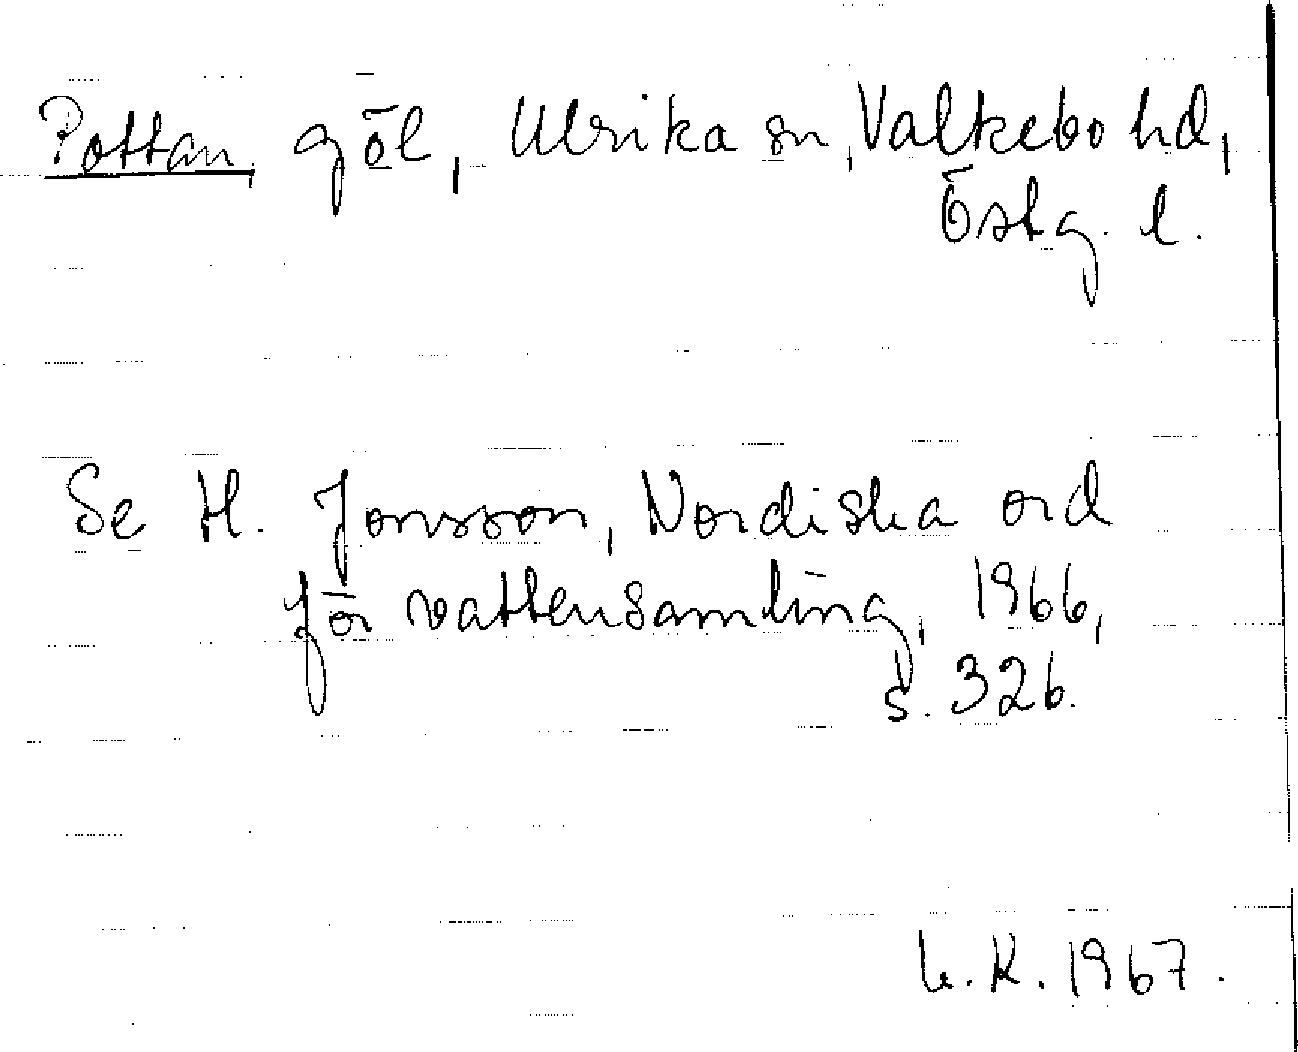 Pottan, göl, Ulrika sn, Valkebo hd,
Östg. l.
Se H. Jonsson, Nordiska ord
för vattensamling, 1966,
s. 326.
K. 1967.